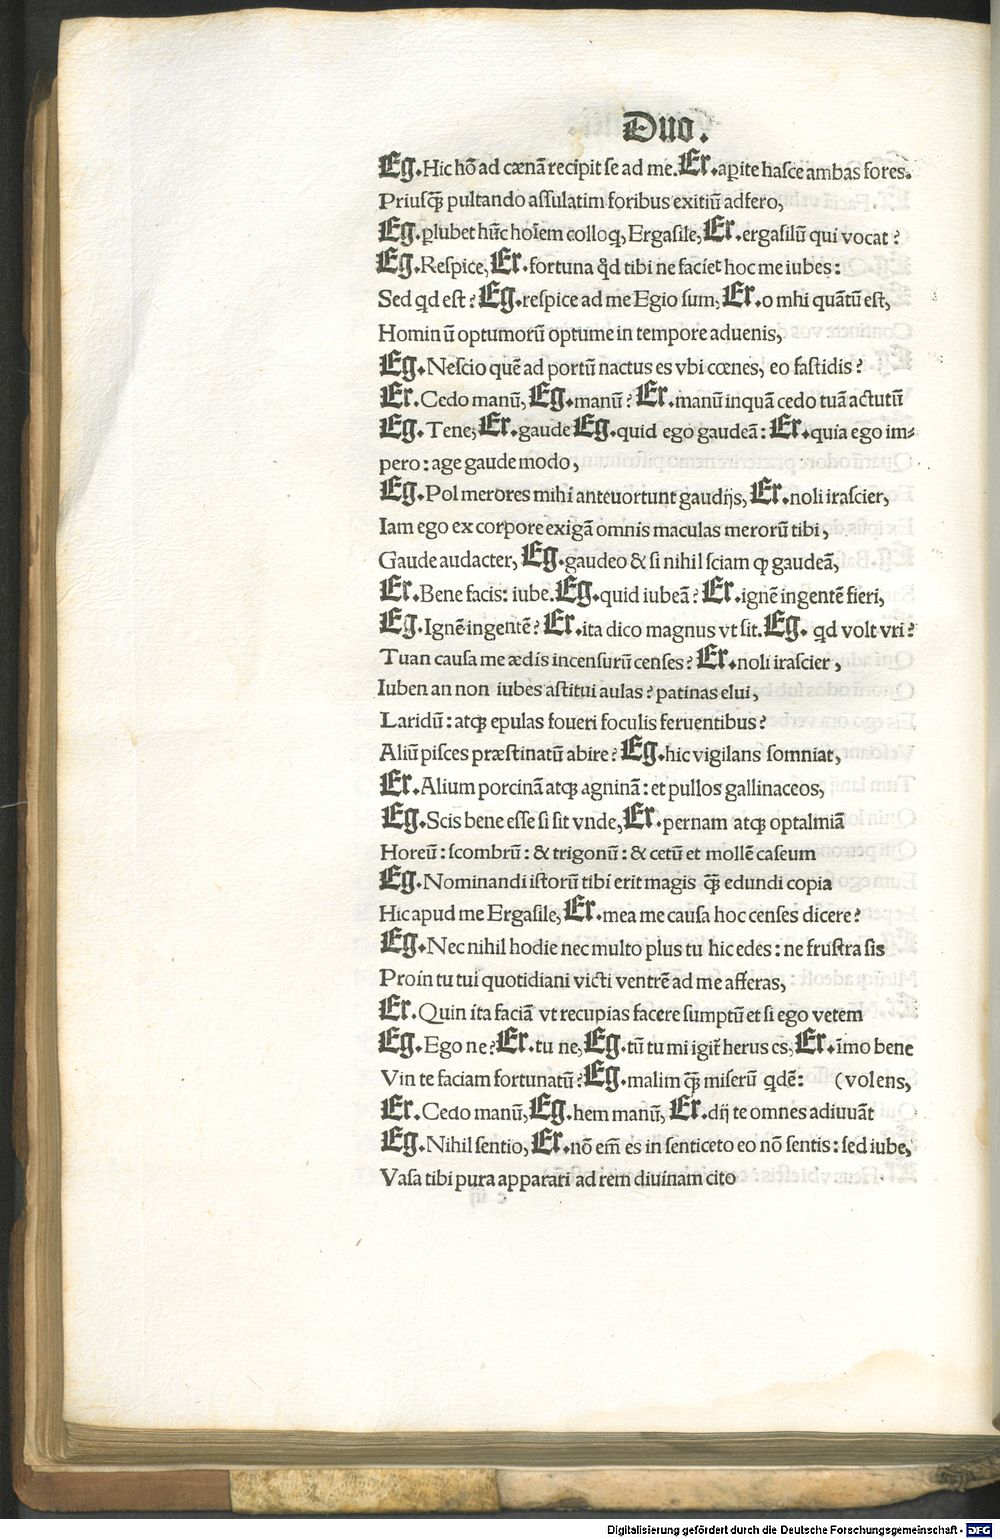 Duo.
Eg.Hic hõ ad cænã recipit se ad me.Er.aꝑite hasce ambas fores.
Priusꝗ̃ pultando assulatim foribus exitiũ adfero,
Eg.ꝑlubet hũc hoĩem colloq, Ergasile, Er.ergasilũ qui vocat?
Eg.Respice, Er.fortuna qd̛ tibi ne faciet hoc me iubes:
Sed qd est? Eg.respice ad me Egio sum, Er.o mhi quãtũ est,
Hominũ optumorũ optume in tempore aduenis,
Eg.Nescio quẽ ad portũ nactus es vbi cœnes, eo fastidis?
Er.Cedo manũ, Eg.manũ? Er.manũ inquã cedo tuã actutũ
Eg.Tene, Er.gaude Eg.quid ego gaudeã: Er.quia ego im⸗
pero: age gaude modo,
Eg.Pol merores mihi anteuortunt gaudijs, Er.noli irascier,
Iam ego ex corpore exigã omnis maculas merorũ tibi,
Gaude audacter, Eg.gaudeo & si nihil sciam ꝙ gaudeã,
Er.Bene facis: iube.Eg.quid iubeã? Er.ignẽ ingentẽ fieri,
Eg.Ignẽ ingentẽ? Er.ita dico magnus vt sit.Eg. qd volt vri?
Tuan causa me ædis incensurũ censes? Er.noli irascier,
Iuben an non iubes astitui aulas? patinas elui,
Laridũ: atqꝫ epulas foueri foculis feruentibus?
Aliũ pisces præstinatũ abire? Eg.hic vigilans somniat,
Er.Alium porcinã atqꝫ agninã: et pullos gallinaceos,
Eg.Scis bene esse si sit vnde, Er.pernam atqꝫ optalmiã
Horeũ: scombrũ: & trigonũ: & cetũ et mollẽ caseum
Eg.Nominandi istorũ tibi erit magis ꝗ̃ edundi copia
Hic apud me Ergasile, Er.mea me causa hoc censes dicere?
Eg.Nec nihil hodie nec multo plus tu hic edes: ne frustra sis
Proin tu tui quotidiani victi ventrẽ ad me afferas,
Er.Quin ita faciã vt recupias facere sumptũ et si ego vetem
Eg.Ego ne? Er.tu ne, Eg.tũ tu mi igit̃ herus es, Er.ĩmo bene
Vin te faciam fortunatũ? Eg.malim ꝗ̃ miserũ qdẽ: (volens,
Er.Cedo manũ, Eg.hem manũ, Er.dij te omnes adiuuãt
Eg.Nihil sentio, Er.nõ em̃ es in senticeto eo nõ sentis: sed iube,
Vasa tibi pura apparari ad rem diuinam cito
Digitalisierung gefördert durch die Deutsche Forschungsgemeinschaft - DFG